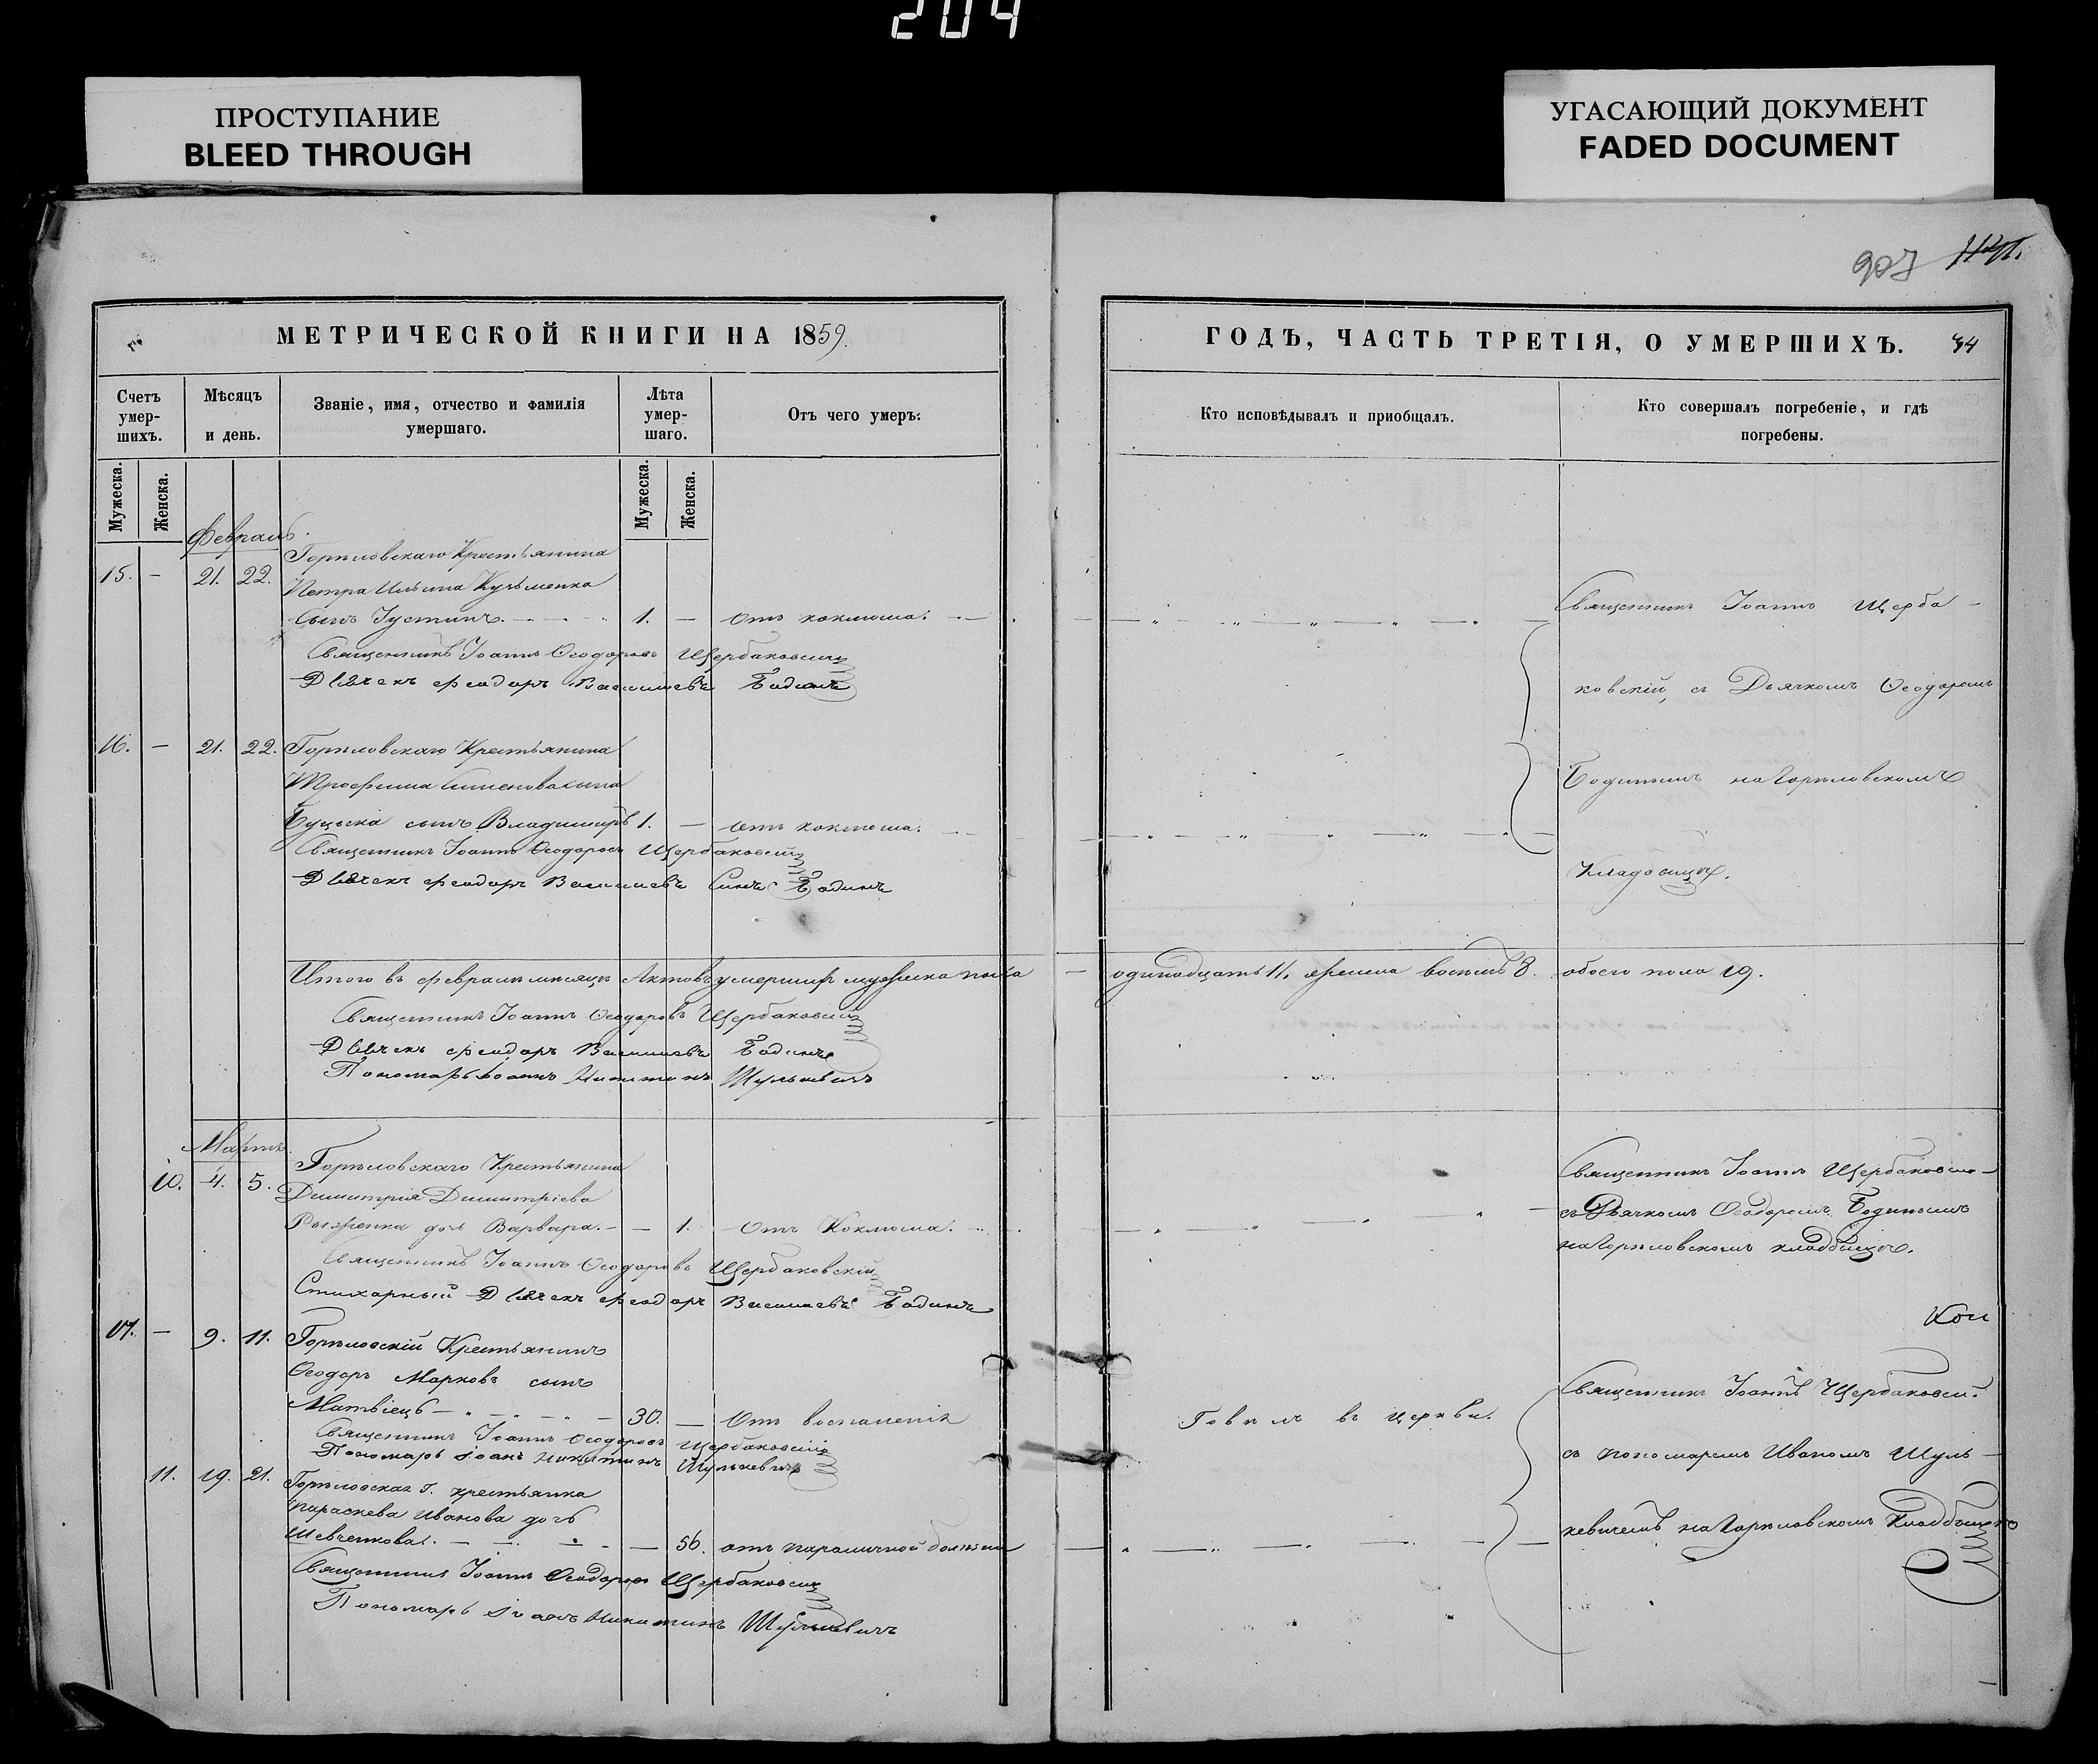 204
ПРОСТУПАНИЕ
BLEED THROUGH
УГАСАЮЩИЙ ДОКУМЕНТ
FADED DOCUMENT
907
МЕТРИЧЕСКОЙ КНИГИ НА 1859.
Счетъ умер-шихъ.
Мѣсяцъ и день.
Званіе, имя, отчество и фамилія умершаго.
Лѣта умер-шаго.
Отъ чего умеръ:
Мужеска.
Женска.
Мужеска.
Женска.
Февраль.
Горѣловскаго Крестьянина
15. — 21. 22. Петра Ильина Кузьменка
сынъ Іустинъ. 1. — Отъ коклюша.
Священникъ Іоаннъ Ѳеодоровъ Щербаковскій
Дьячекъ Феодоръ Васильевъ Бодинъ
16. — 21. 22. Горѣловскаго Крестьянина
Трофима Симеонова сына
сынъ Владимиръ 1. — Отъ коклюша.
Священникъ Іоаннъ Ѳеодоровъ Щербаковскій
Дьячекъ Феодоръ Васильевъ Сынъ Бодинъ
Итого въ февралѣ мѣсяцѣ Актовъ умершихъ мужеска пола
Священникъ Іоаннъ Ѳеодоровъ Щербаковскій
Дьячекъ Феодоръ Васильевъ Бодинъ
Пономарь Іоаннъ Никитинъ Шулькевичъ
Мартъ.
Горѣловскаго Крестьянина
10. 4. 5. Димитрія Димитріева
дочь Варвара. — — 1. Отъ Коклюша.
Священникъ Іоаннъ Ѳеодоровъ Щербаковскій
Стихарный Дьячекъ Феодоръ Васильевъ Бодинъ
17. — 9. 11. Горѣловскій Крестьянинъ
Ѳеодоръ Марковъ сынъ
Матвіецъ 30. — Отъ воспаленія
Священникъ Іоаннъ Ѳеодоровъ Щербаковскій
Пономарь Іоанъ Никитинъ Шулькевичъ
11. 19. 21. Горѣловская Крестьянка
Параскева Иванова дочь
Шевченкова. — 56. отъ параличной болѣзни
Священникъ Іоаннъ Ѳеодоровъ Щербаковскій
Пономарь Іоаннъ Никитинъ Шулькевичъ
ГОДЪ, ЧАСТЬ ТРЕТІЯ, О УМЕРШИХЪ.
Кто исповѣдывалъ и приобщалъ.
Кто совершалъ погребеніе, и гдѣ погребены.
Священникъ Іоаннъ Щерба-
ковскій, съ Дьячкомъ Ѳеодоромъ
Бодинымъ на Горѣловскомъ
Кладбищѣ.
одинадцать 11. женска восемь 8. обоего пола 19.
Священникъ Іоаннъ Щербаковскі
съ Дьячкомъ Ѳеодоромъ Бодинымъ
на Горѣловскомъ кладбищѣ.
Говѣлъ въ церкви.
Священникъ Іоаннъ Щербаковскі
съ пономаремъ Иваномъ Шуль-
кевичемъ на Горѣловскомъ Кладбищѣ